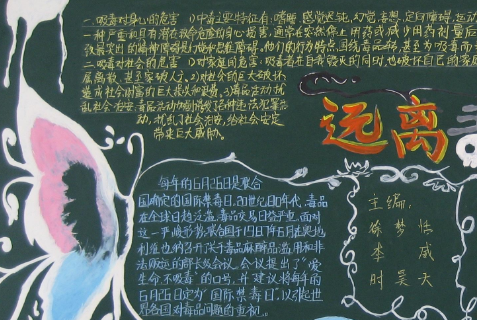 一.吸毒对身心的危害 1)中毒主要特征有:嗜睡、感觉迟钝、幻觉、妄想、定向障碍、运动
一种严重和具有潜在致命危险的身心损害,通常在突然停止用药或减少用药剂量后
致最突出的精神障碍是幻觉和思维障碍。他们的行为特点围绕毒品转,甚至为吸毒而
二.吸毒对社会的危害 1)对家庭的危害:吸毒者在自我毁灭的同时,也破坏自己的家庭
属离散、甚至家破人亡。2)对社会的巨大破坏
量,毒品活动扰
乱社会治安:毒品活动加剧诱发了各种违法犯罪活
动,扰乱了社会治安,给社会安定
带来巨大威胁。
远离
每年的6月26日是联合
国确定的国际禁毒日。20世纪80年代,毒品
在全球日趋泛滥,毒品交易日益严重。面对
这一严峻形势,联合国于1987年6月在奥地
利维也纳召开了关于毒品麻醉品滥用和非
法贩运的部长级会议。会议提出了“爱
生命 不吸毒”的口号,并建议将每年的
6月26日定为“国际禁毒日”,以引起世
界各国对毒品问题的重视。
主编:
徐梦
李威
时昊天